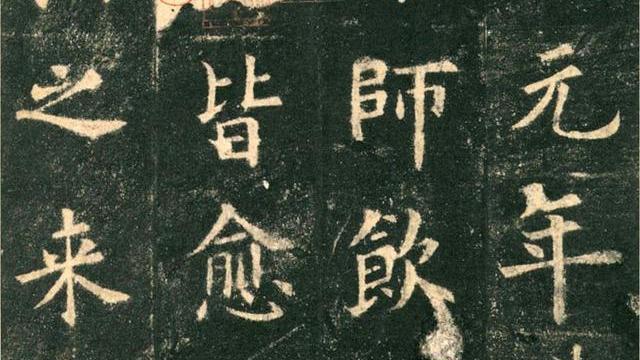 元年
師飲
皆愈
之来